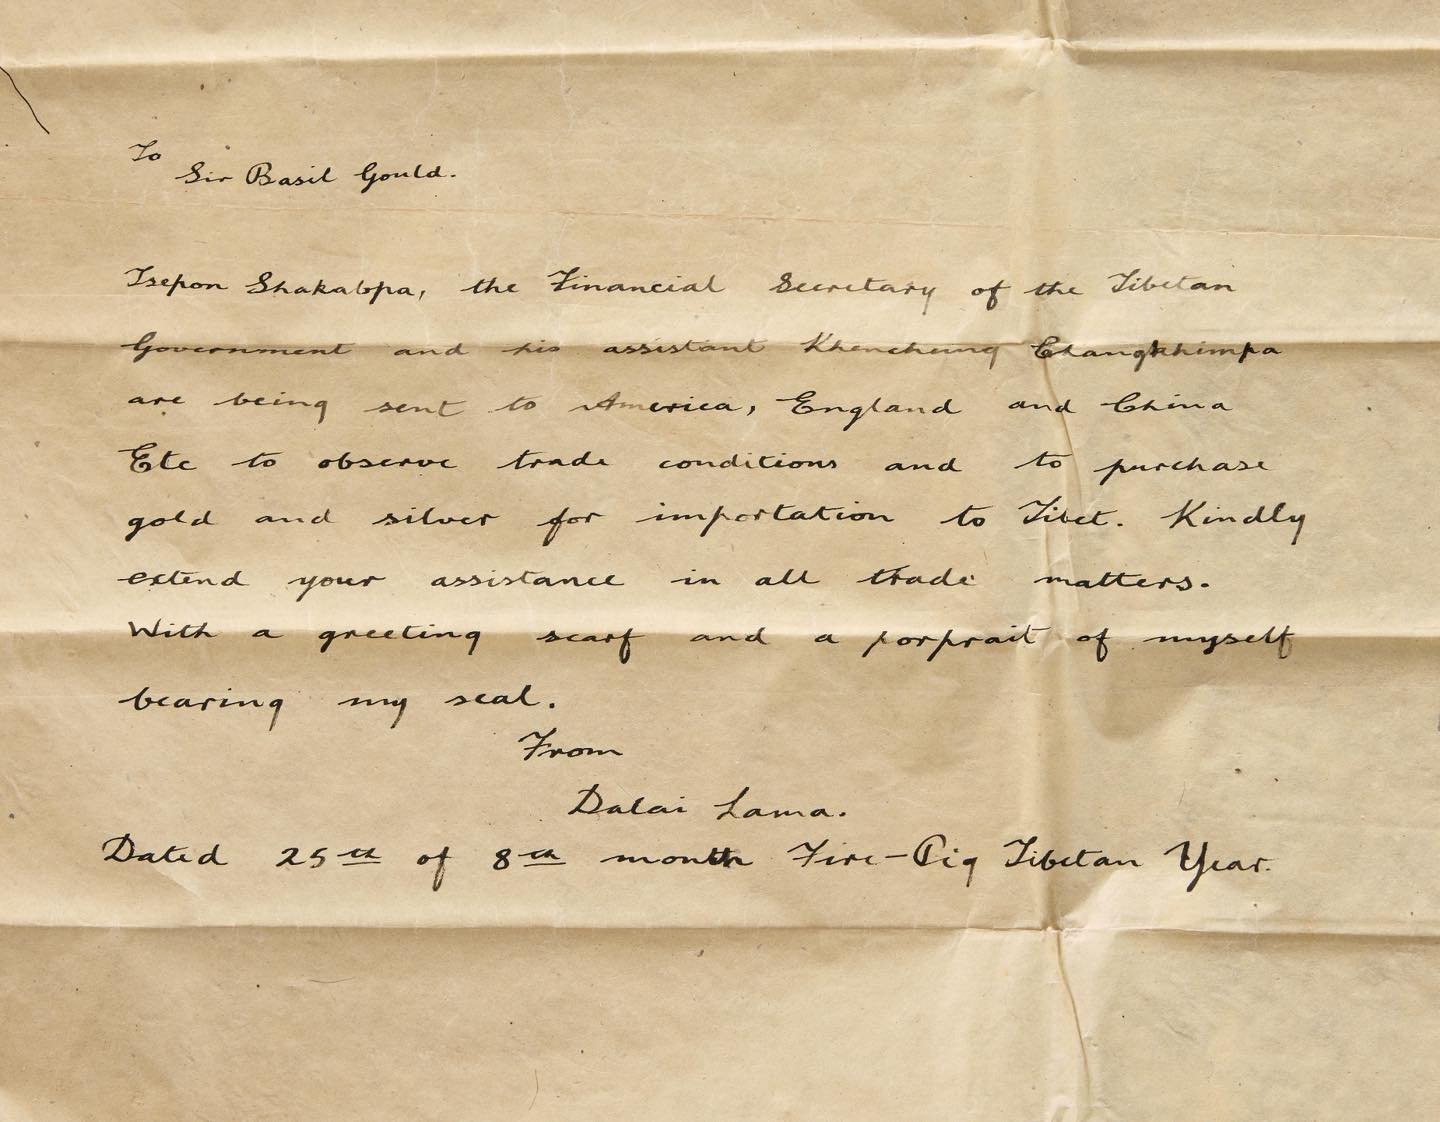 To
Sir Basil Gould.
Tsepon Shakabpa, the Financial Secretary of the Tibetan
Government and his assistant Khenchung Changkhimpa
are being sent to America, England and China
Etc to observe trade conditions and to purchase
gold and silver for importation to Tibet. Kindly
extend your assistance in all trade matters.
With a greeting scarf and a porprait of myself
bearing my seal.
From
Dalai Lama.
Dated 25th of 8th month Fire-Pig Tibetan Year.